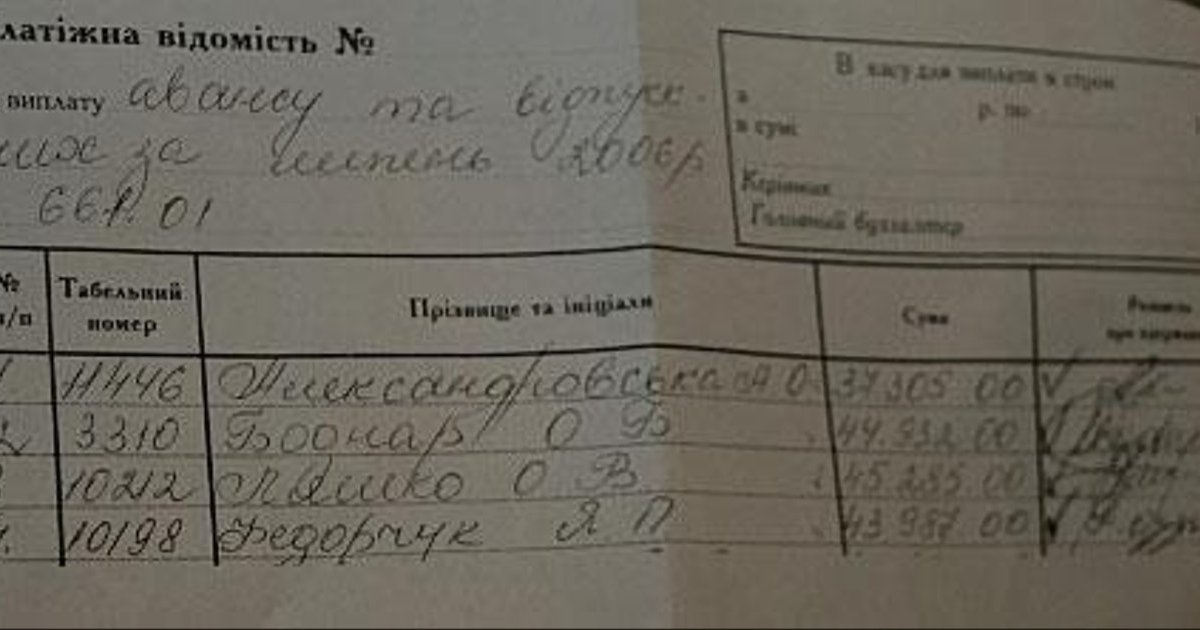 латіжна відомість №
виплату авансу та відпуск-
них за липень 2006р
661.01
В касу для виплати в строк
з р. по
в сумі
Керівник
Головний бухгалтер
№ п/п Табельний номер Прізвище та ініціали Сума
1 11446 Александровська А О 37305 00
2 3310 Боднар О В 44.932 00
10212 Ляшко О В 45 285 00
4. 10198 Федорчук Я П 43 987 00